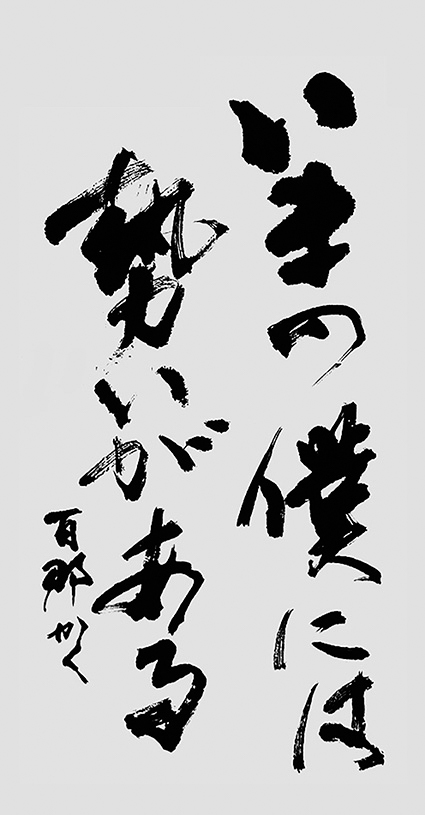 いまの僕には
勢いがある
百那かく